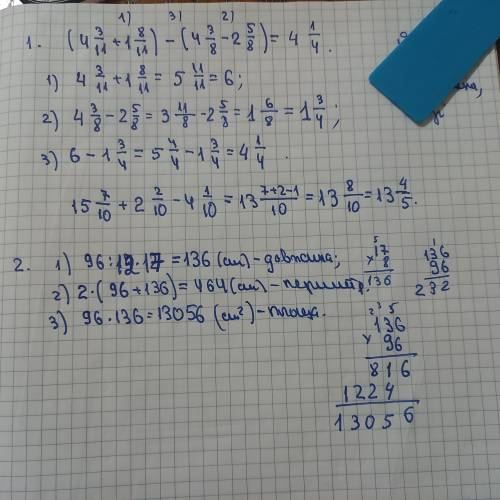 1) 3) 2)
1. (4 3/11 + 1 8/11) - (4 3/8 - 2 5/8) = 4 1/4.
1) 4 3/11 + 1 8/11 = 5 11/11 = 6;
2) 4 3/8 - 2 5/8 = 3 11/8 - 2 5/8 = 1 6/8 = 1 3/4;
3) 6 - 1 3/4 = 5 4/4 - 1 3/4 = 4 1/4.
15 7/10 + 2 2/10 - 4 1/10 = 13 7+2-1/10 = 13 8/10 = 13 4/5.
2. 1) 96:12·17=136 (см) - довжина;
2) 2·(96+136)=464 (см) - периметр;
3) 96·136=13056 (см²) - площа.
5
17
× 8
136
1
136
96
232
2 3 5
136
× 96
816
1224
13056